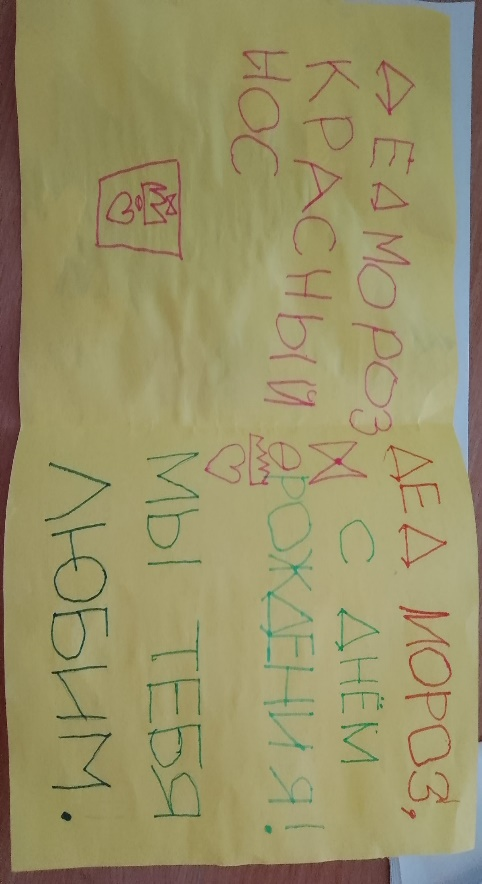 ДЕД МОРОЗ
КРАСНЫЙ
НОС
ДЕД МОРОЗ,
С ДНЁМ
РОЖДЕНИЯ!
МЫ ТЕБЯ
ЛЮБИМ.